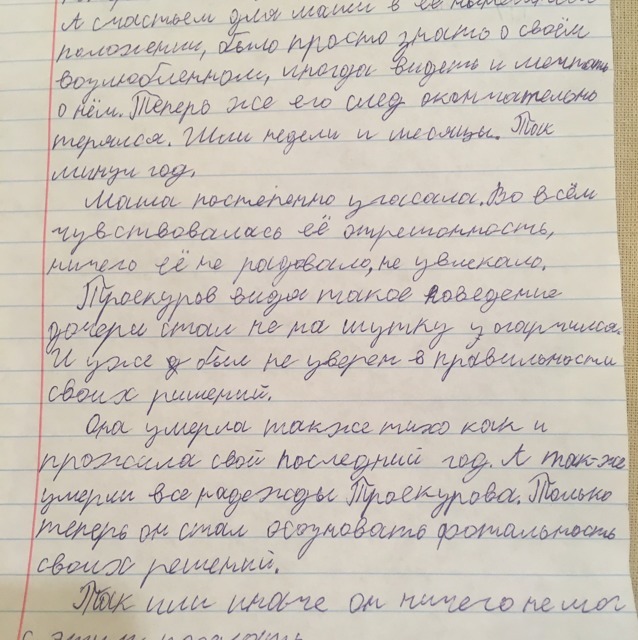 А счастьем для маши в её нынешнем
положении, было просто знать о своём
возлюбленном, иногда видеть и мечтать
о нём. Теперь же его след окончательно
терялся. Шли недели и месяцы. Так
минул год.
Маша постепенно угасала. Во всём
чувствовалась её отрешонность,
ничего её не радовало, не увлекало.
Троекуров видя такое поведение
дочери стал не на шутку
И уже был не уверен в правильности
своих ришений.
Она умерла также тихо как и
прожила свой последний год. А так-же
умерли все надежды Троекурова. Только
теперь он стал осозновать фотальность
своих решений.
Так или иначе он ничего не мог
с этим поделать